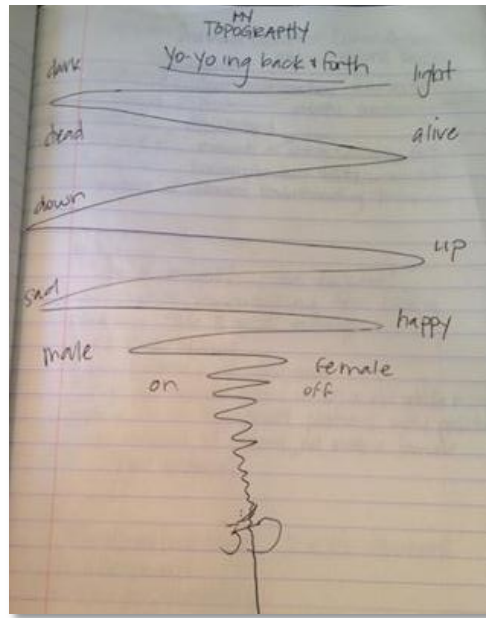 MY
TOPOGRAPHY
Yo-Yoing back & forth
dark light
dead alive
down up
sad happy
male female
on off